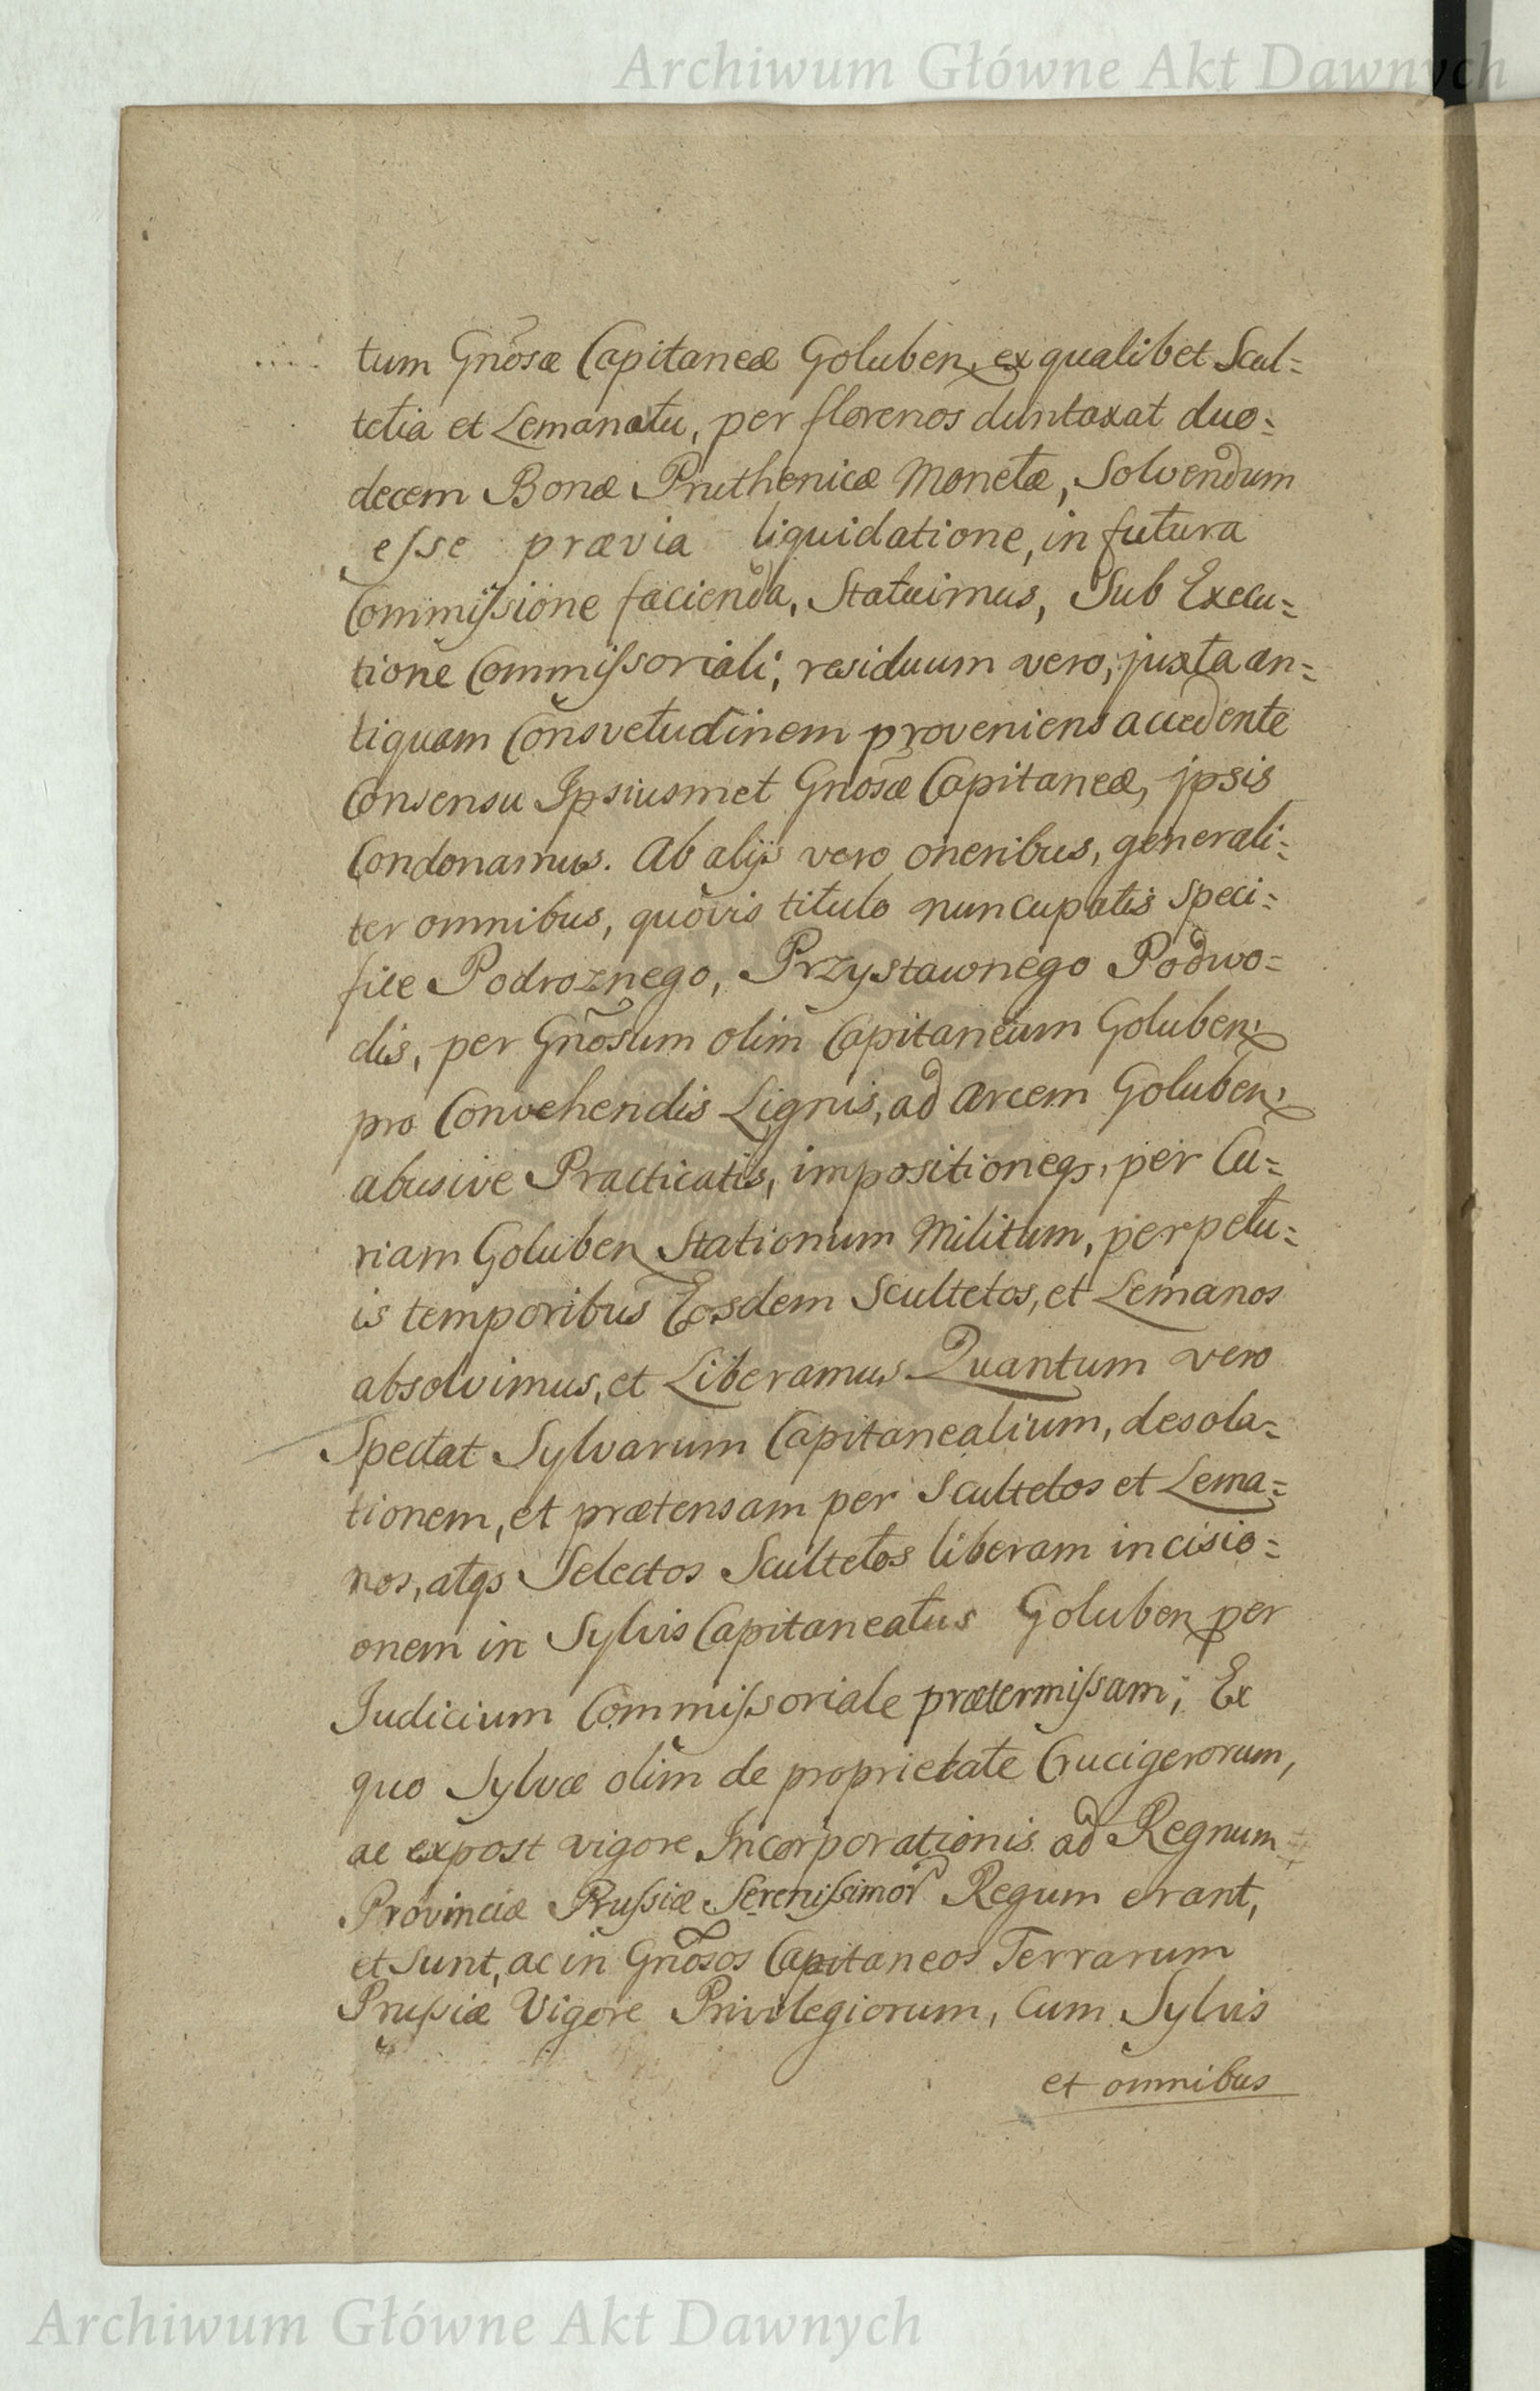 Archiwum Główne Akt Dawnych
tum Gnõsæ Capitaneæ Goluben, ex qualibet Scul=
tetia et Lemanatu, per florenos duntaxat duo=
decem Bonæ Pruthenicæ Monetæ, Solvendum
esse prævia liquidatione, in futura
Commissione facienda, Statuimus, Sub Execu=
tione Commissoriali; residuum vero, juxta an=
tiquam Consvetudinem proveniens accedente
Consensu Ipsiusmet Gnosæ Capitaneæ, jpsis
Condonamus. Ab alijs vero oneribus, generali=
ter omnibus, quovis titulo nuncupatis speci=
fice Podroznego, Przystawnego Podwo=
dis, per Gnõsum olim Capitaneum Goluben:
pro Convehendis Lignis, ad arcem Goluben:
abusive Practicatis, impositioneqs, per Cu=
riam Goluben Stationum Militum, perpetu=
is temporibus Eosdem Scultetos, et Lemanos
absolvimus, et Liberamus Quantum vero
Spectat Sylvarum Capitanealium, desola=
tionem, et prætensam per Scultetos et Lema=
nos, atqs Selectos Scultetos liberam incisio=
onem in Sylvis Capitaneatus Goluben per
Iudicium Commissoriale prætermissam; Ex
quo Sylvæ olim de proprietate Crucigerorum,
ac expost vigore Incorporationis ad Regnum
Provinciæ Prussiæ Serenissimor Regum erant,
et Sunt, ac in Gnõsos Capitaneos Terrarum
Prussiæ Vigore Privilegiorum, Cum Sylvis
et omnibus
Archiwum Główne Akt Dawnych